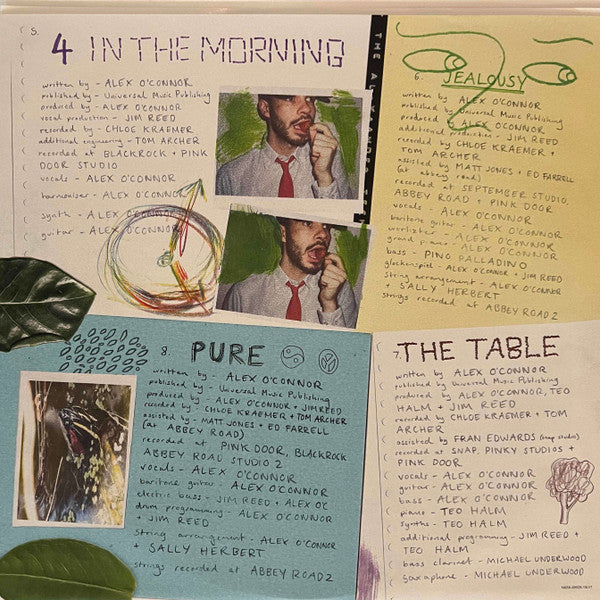 5.
4 IN THE MORNING
written by - ALEX O'CONNOR
published by - Universal Music Publishing
produced by - ALEX O'CONNOR
vocal production - JIM REED
recorded by - CHLOE KRAEMER
additional engineering - TOM ARCHER
recorded at BLACKROCK + PINK
DOOR STUDIO
vocals - ALEX O'CONNOR
harmoniser - ALEX O'CONNOR
synth - ALEX O'CONNOR
guitar - ALEX O'CONNOR
THE
6.
JEALOUSY
written by ALEX O'CONNOR
published by Universal Music Publishing
produced by ALEX O'CONNOR
additional production - JIM REED
recorded by CHLOE KRAEMER +
TOM ARCHER
assisted by MATT JONES + ED FARRELL
(at abbey road)
recorded at SEPTEMBER STUDIO,
ABBEY ROAD + PINK DOOR
vocals - ALEX O'CONNOR
baritone guitar - ALEX O'CONNOR
wurlitzer - ALEX O'CONNOR
grand piano - ALEX O'CONNOR
bass - PINO PALLADINO
glockenspiel - ALEX O'CONNOR + JIM REED
string arrangement - ALEX O'CONNOR
+ SALLY HERBERT
strings recorded at ABBEY ROAD 2
8.
PURE
written by - ALEX O'CONNOR
published by - Universal Music Publishing
produced by - ALEX O'CONNOR + JIM REED
recorded by - CHLOE KRAEMER + TOM ARCHER
assisted by - MATT JONES + ED FARRELL
(at ABBEY ROAD)
recorded at PINK DOOR, BLACKROCK
ABBEY ROAD STUDIO 2
vocals - ALEX O'CONNOR
baritone guitar - ALEX O'CONNOR
electric bass - JIM REED + ALEX OC
drum programming - ALEX O'CONNOR
+ JIM REED
string arrangement - ALEX O'CONNOR
+ SALLY HERBERT
strings recorded at ABBEY ROAD 2
7.
THE TABLE
written by ALEX O'CONNOR
published by Universal Music Publishing
produced by ALEX O'CONNOR, TEO
HALM + JIM REED
recorded by CHLOE KRAEMER + TOM
ARCHER
assisted by FRAN EDWARDS (snap studios)
recorded at SNAP, PINKY STUDIOS +
PINK DOOR
vocals - ALEX O'CONNOR
guitar - ALEX O'CONNOR
bass - ALEX O'CONNOR
piano - TEO HALM
synths - TEO HALM
additional programming - JIM REED +
TEO HALM
bass clarinet - MICHAEL UNDERWOOD
saxophone - MICHAEL UNDERWOOD